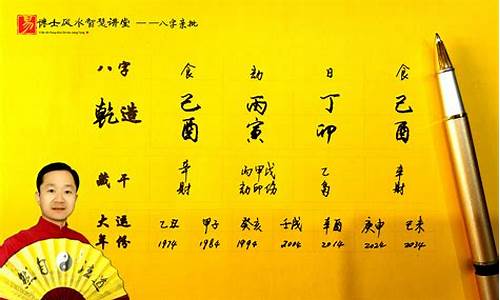 易 博士风水智慧讲堂 ——八字亲批
八字 食 劫 日 食
乾造 己 丙 丁 己
酉 寅 卯 酉
藏干 辛 丙甲戊 乙 辛
财 劫印伤 枭 财
大运 乙丑 甲子 癸亥 壬戌 辛酉 庚申 己未
年份 1974 1984 1994 2004 2014 2024 2034
然自